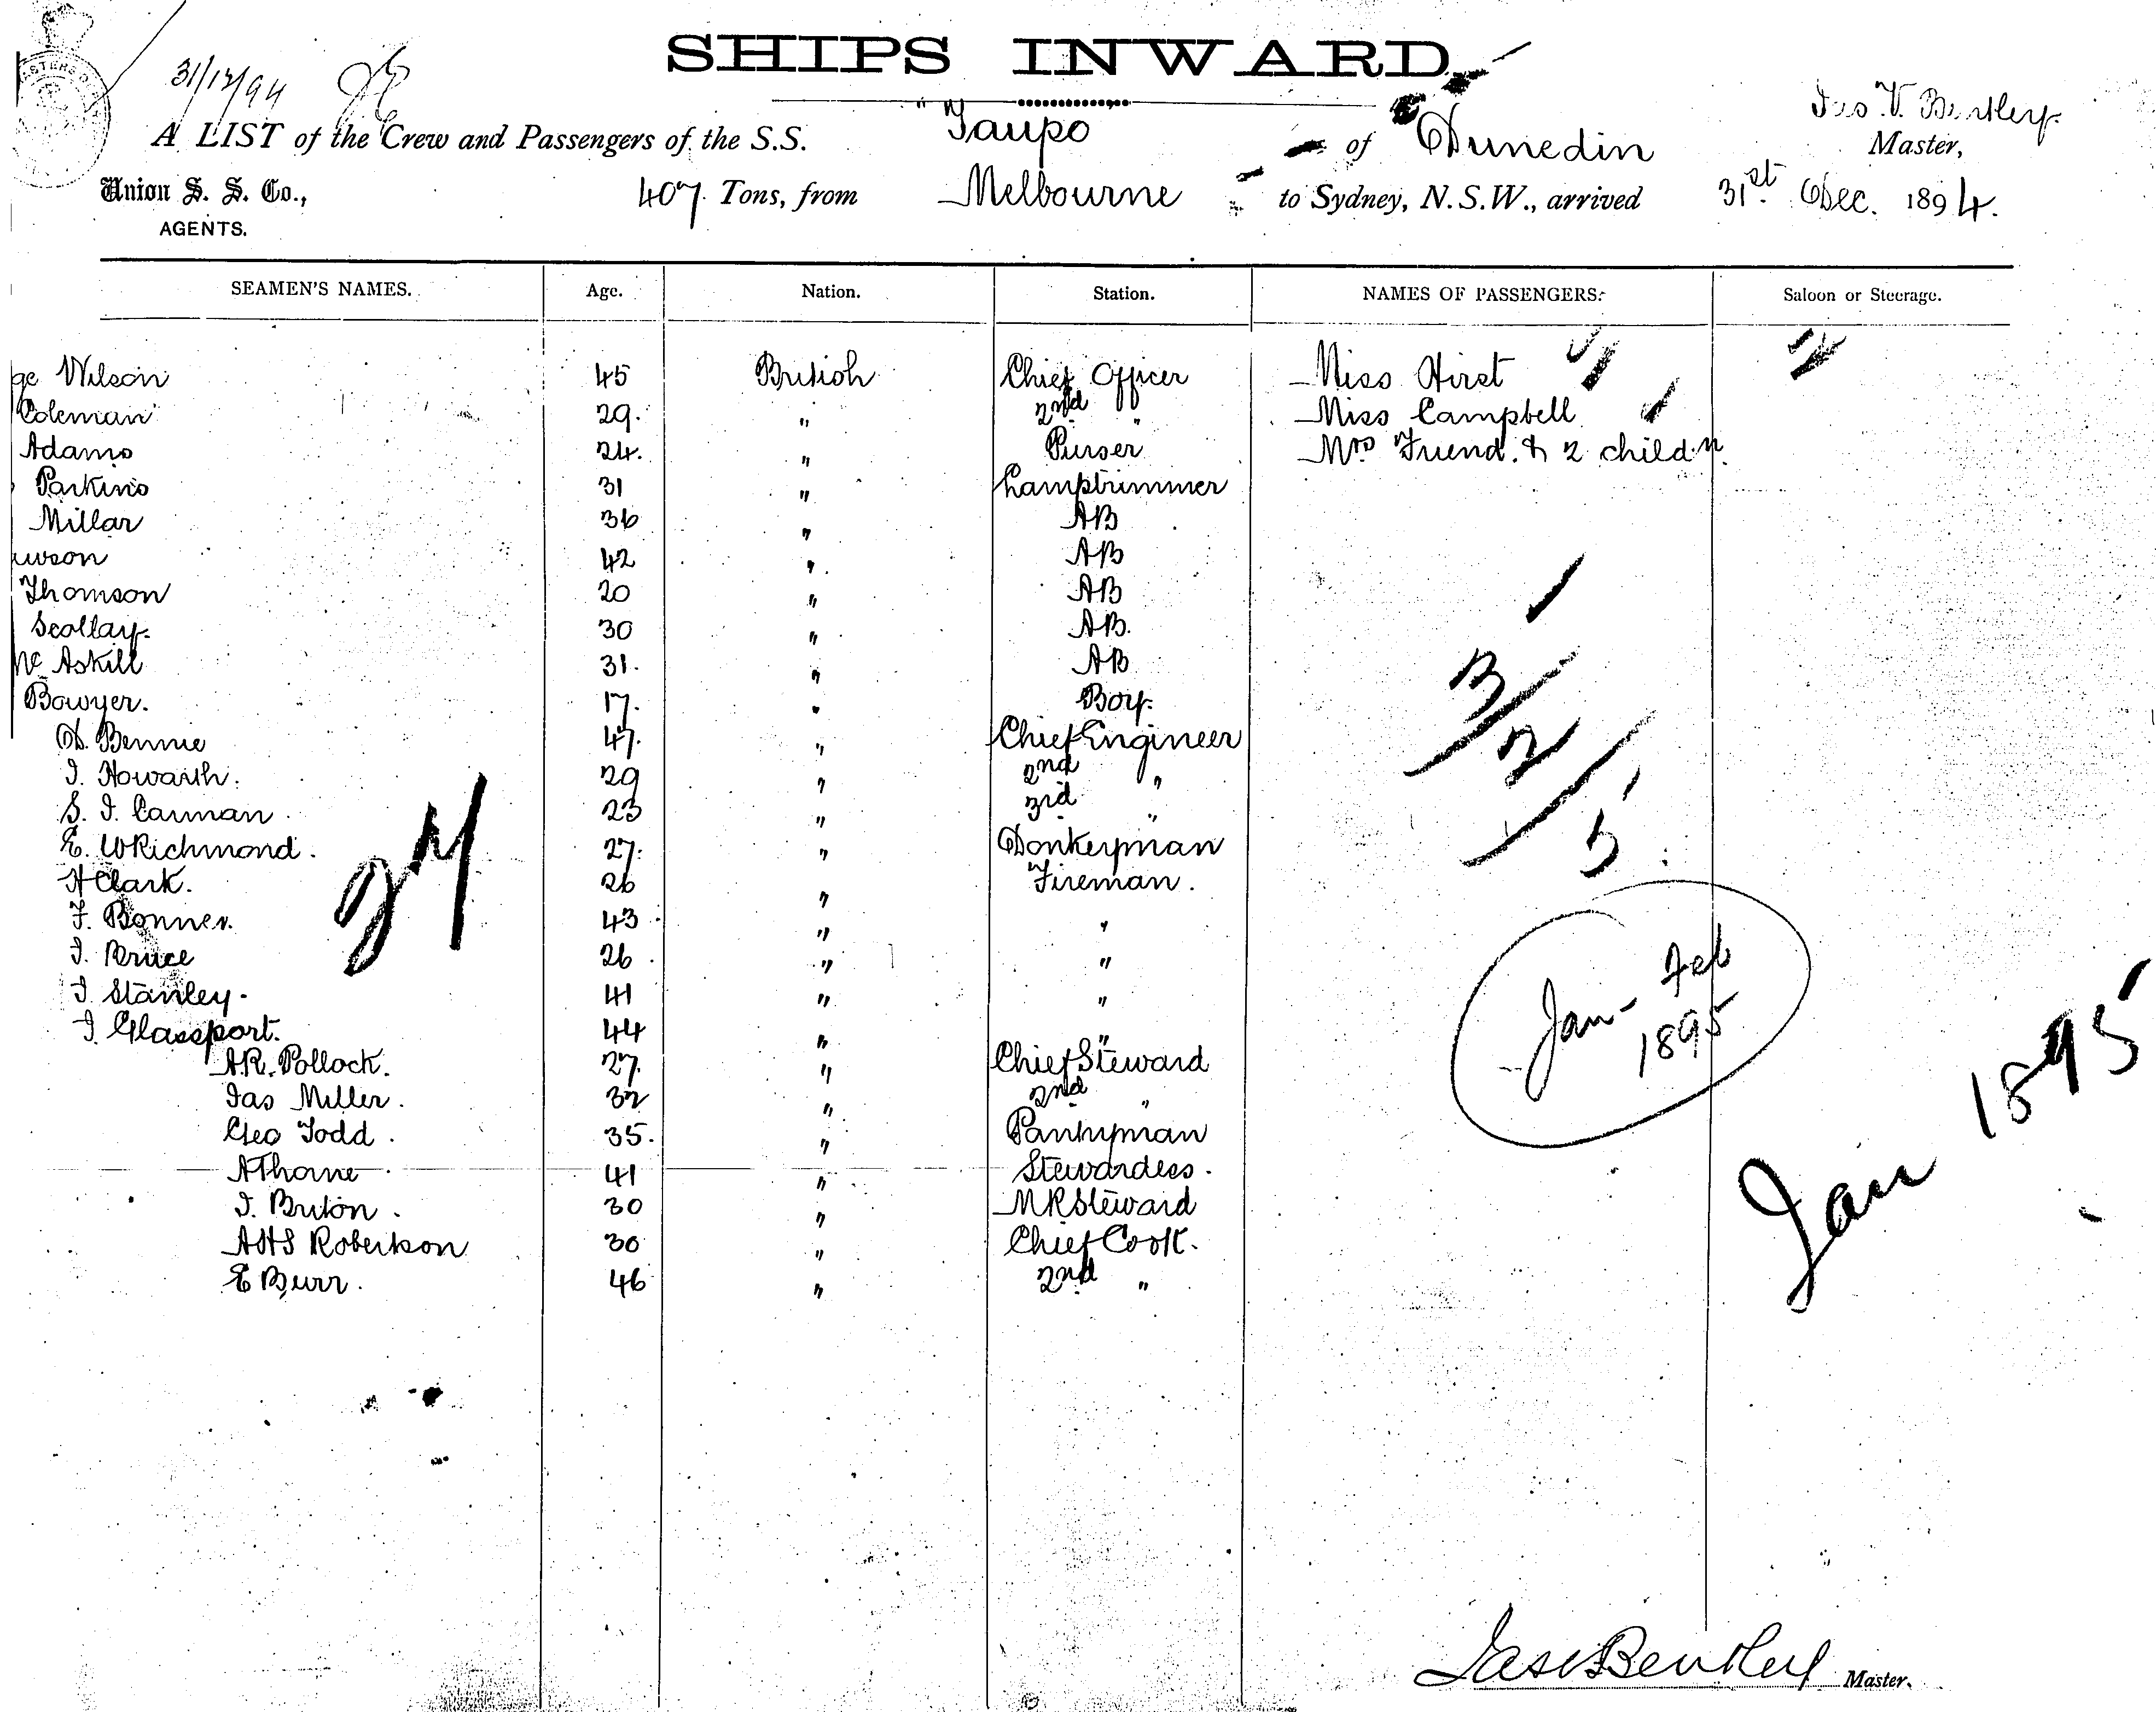 SHIPS INWARD
31/12/94
Jas V. Bentley
A LIST of the Crew and Passengers of the S.S. "Taupo" of Dunedin Master,
Union S. S. Co., 407 Tons, from Melbourne to Sydney, N.S.W., arrived 31st Dec. 1894.
AGENTS.
SEAMEN'S NAMES. Age. Nation. Station. NAMES OF PASSENGERS. Saloon or Steerage.
ge Wilson 45 British Chief Officer Miss Hirst
Coleman 29. " 2nd " Miss Campbell
Adams 24. " Purser Mrs Friend. & 2 childn
Parkins 31 " Lamptrimmer
Millar 36 " AB
wson 42 " AB
Thomson 20 " AB
Scollay. 30 " AB.
Mc Askill 31. " AB
Bowyer. 17. " Boy.
D. Bennie 47. " Chief Engineer
J. Howarth. 29 " 2nd "
S. J. Carman 23 " 3rd "
E. W Richmond. 27. " Donkeyman
H Clark. 26 " Fireman.
F. Bonner. 43 " "
J. Bruce 26 " "
J. Stanley. 41 " "
J. Glassport. 44 " "
A.R. Pollock. 27. " Chief Steward
Jas Miller. 32 " 2nd "
Geo Todd. 35. " Pantryman
A Thorne 41 " Stewardess.
J. Briton. 30 " MR Steward
AHS Robertson 30 " Chief Cook.
E Burr. 46 " 2nd "
3/2/5
Jan - Feb
1895
Jan 1895
Jas V Bentley Master.